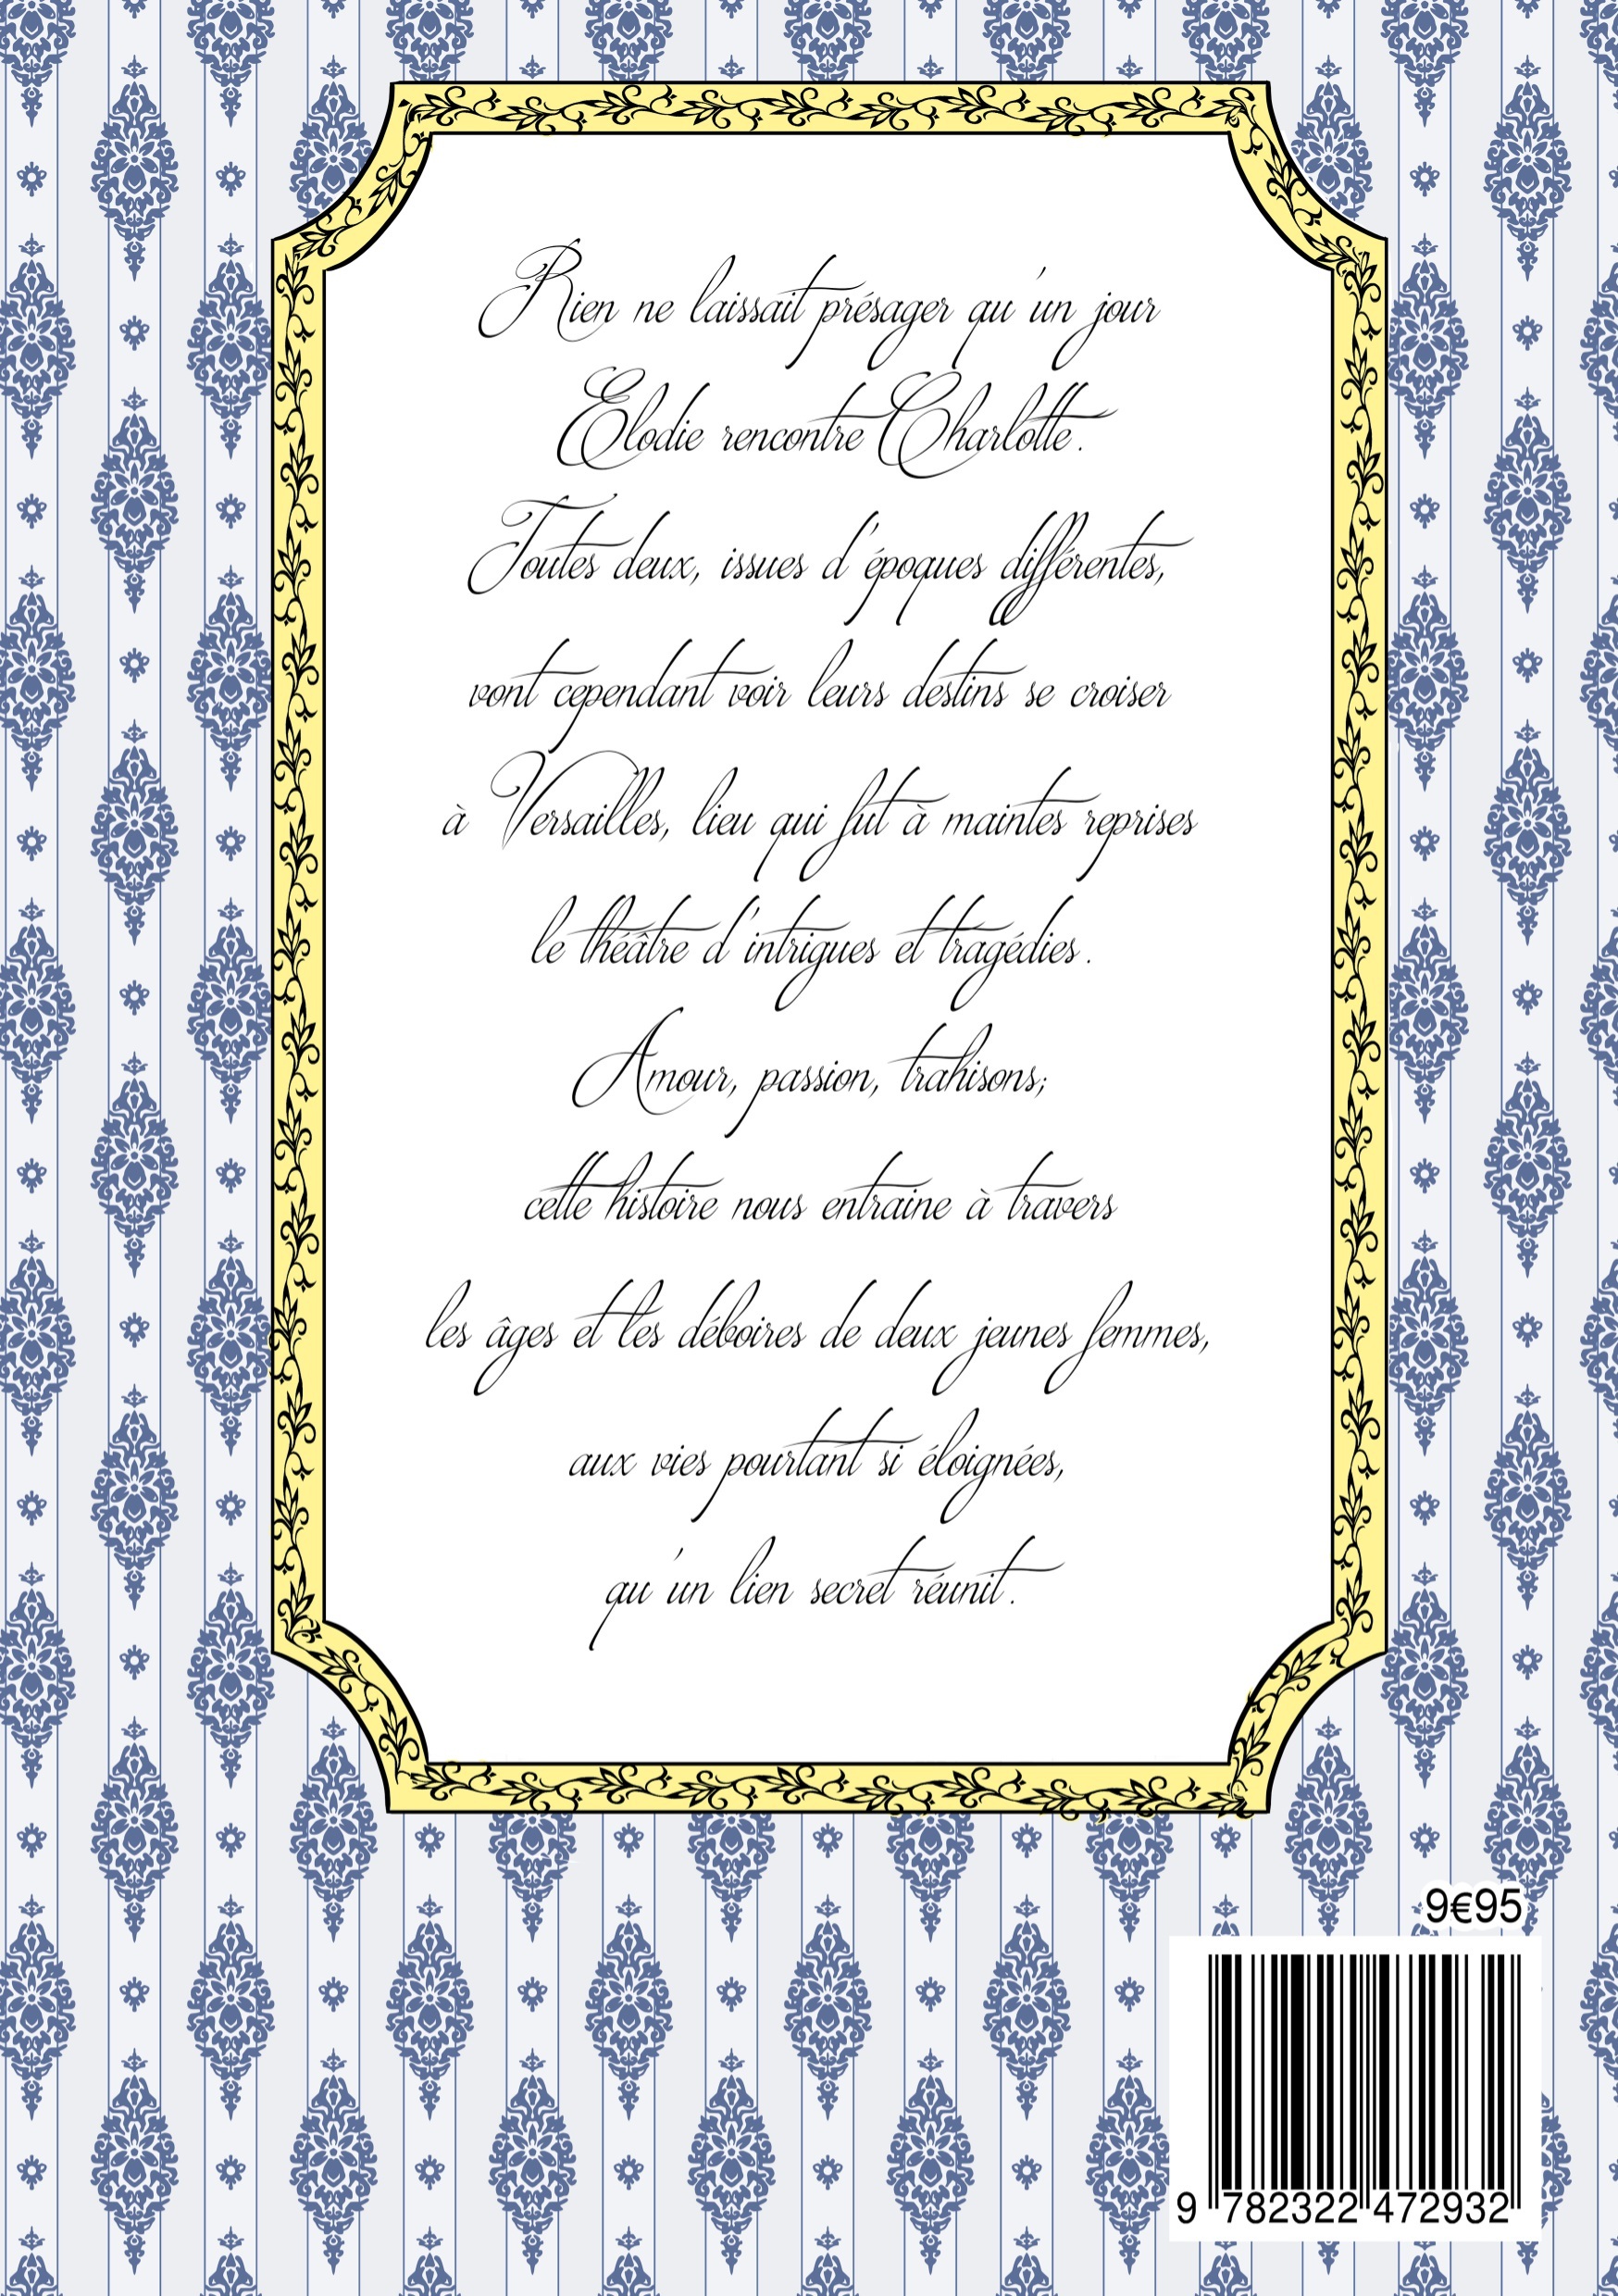 Rien ne laissait présager qu'un jour
Elodie rencontre Charlotte.
Toutes deux, issues d'époques différentes,
vont cependant voir leurs destins se croiser
à Versailles, lieu qui fut à maintes reprises
le théâtre d'intrigues et tragédies.
Amour, passion, trahisons;
cette histoire nous entraine à travers
les âges et les déboires de deux jeunes femmes,
aux vies pourtant si éloignées,
qu'un lien secret réunit.
9€95
9 782322 472932